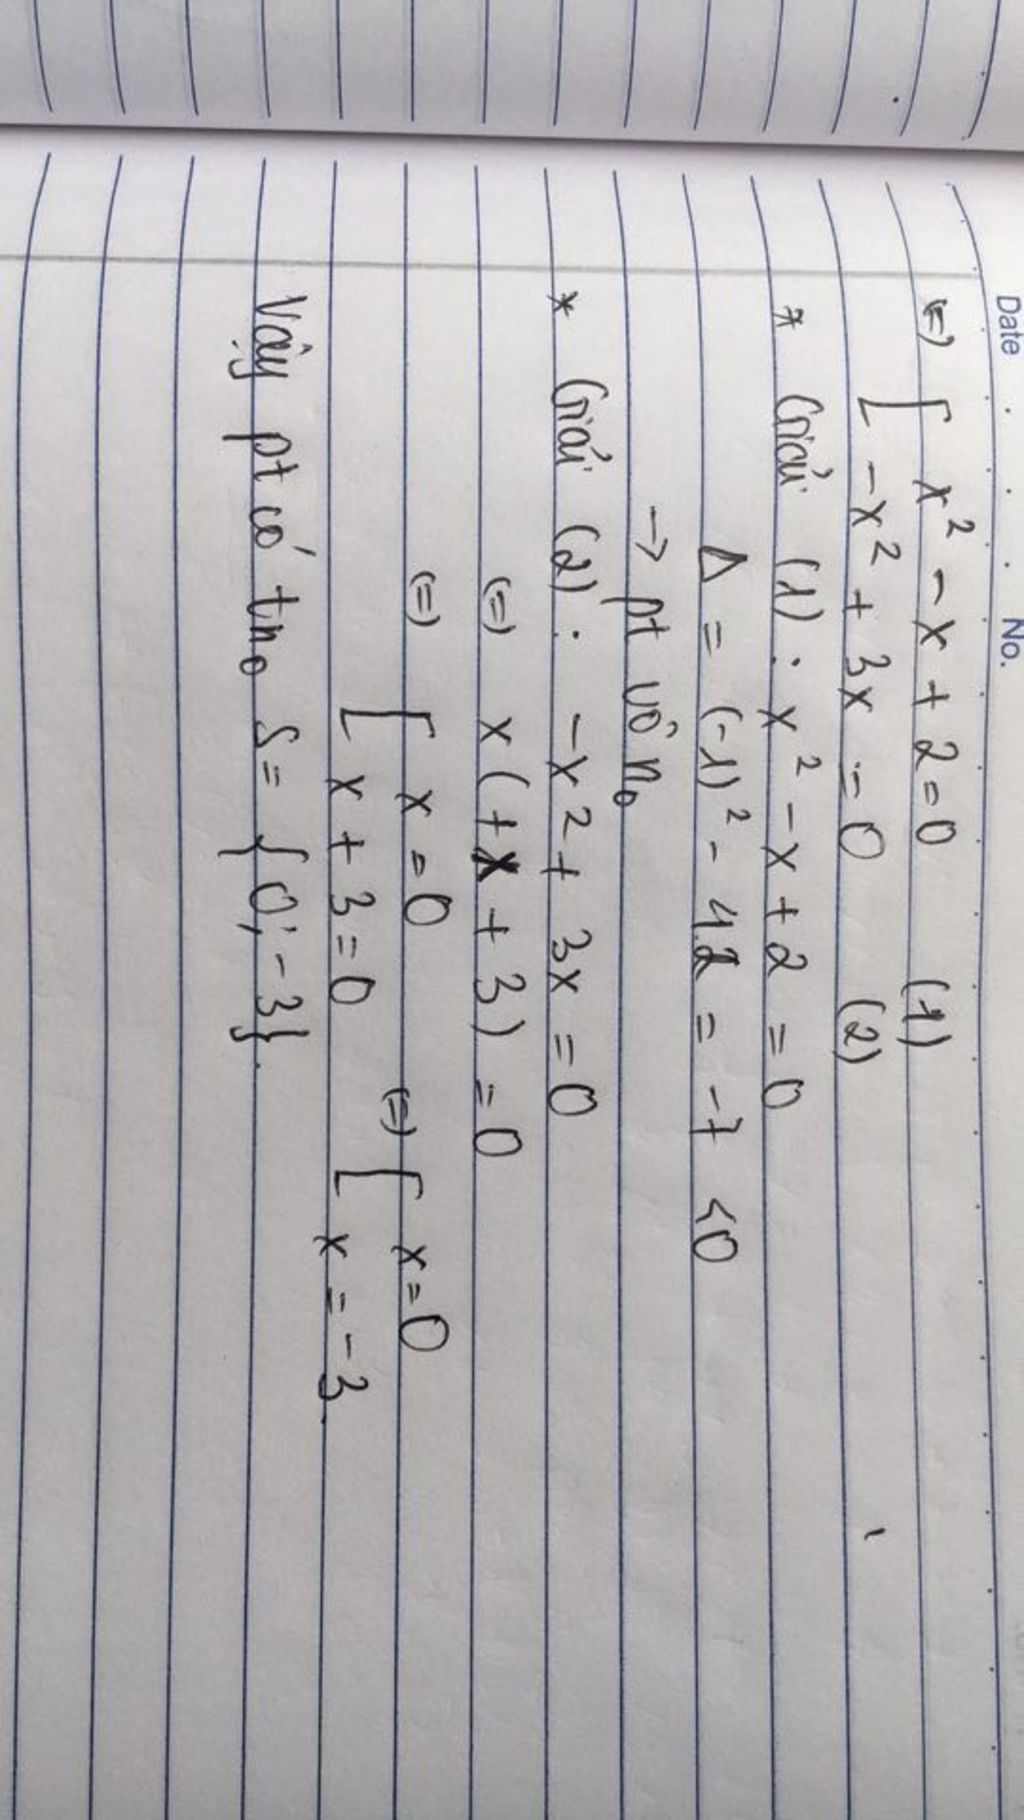 Date No.
(=) [ x² - x + 2 = 0 (1)
[ -x² + 3x = 0 (2)
* Giải (1): x² - x + 2 = 0
Δ = (-1)² - 4.2 = -7 < 0
→ pt vô n₀
* Giải (2): -x² + 3x = 0
(=) x(+x + 3) = 0
(=) [ x = 0 (=) [ x = 0
[ x + 3 = 0 [ x = -3
Vậy pt có tn₀ S = {0; -3}.